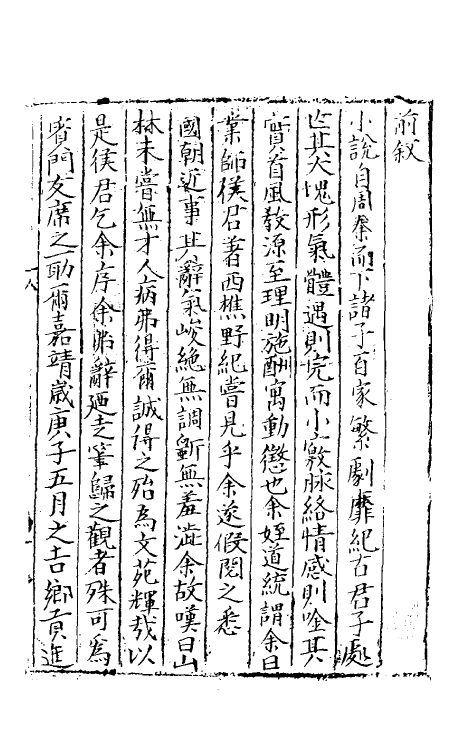 前叙
小說自周秦而下諸子百家繁劇靡紀古君子處
臣其大塊形氣體遇則完而小竅脉絡情感則唫其
實首風教源至理明施酬寓動懲也余姪道統謂余曰
業師侯君著西樵野紀嘗見乎余遂假閱之悉
國朝近事其辭氣峻絕無調斲無羞澁余故嘆曰山
林未嘗無才人病弗得爾誠得之殆為文苑輝哉以
是侯君乞余序余弗辭廼走筆歸之觀者殊可為
賓門友席之一助爾嘉靖歲庚子五月之吉鄉貢進